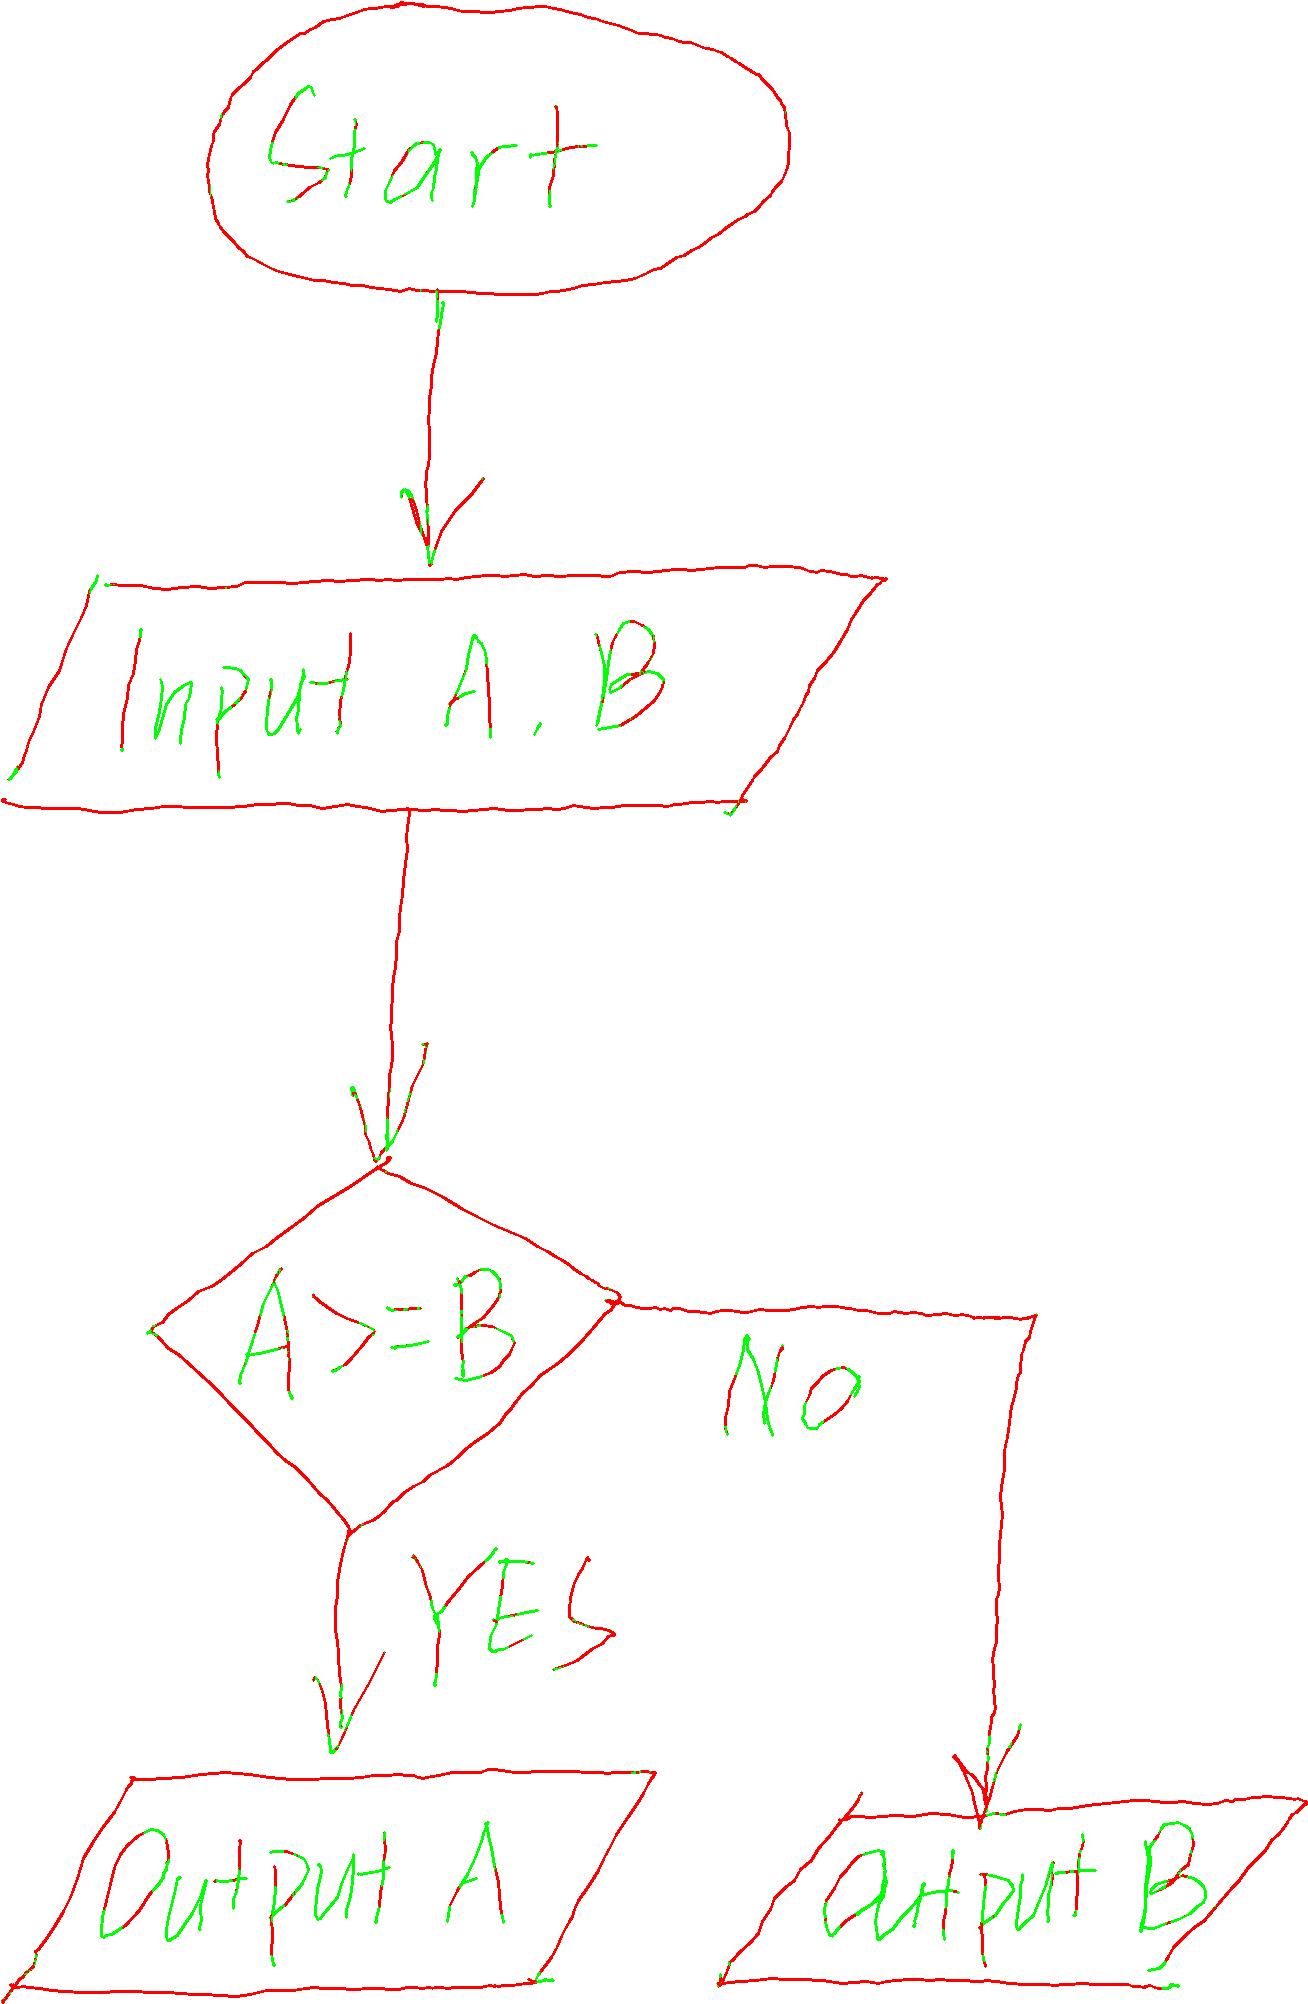 Start
Input A, B
A>=B
No
YES
Output A
Output B